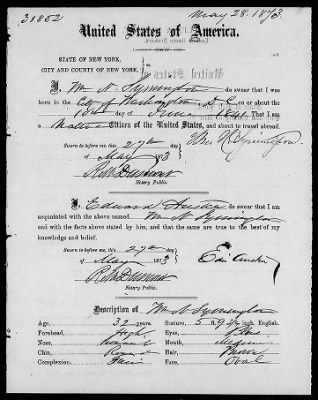 31852
May 28. 1873.
United States of America.
STATE OF NEW YORK,
CITY AND COUNTY OF NEW YORK,
I, Wm N. Symington do swear that I was
born in the City of Washington D C on or about the
day of June 1841 that I am
a Native Citizen of the United States, and about to travel abroad.
Sworn to before me, this 27th day
of May 1873
Wm N Symington
Notary Public.
I, Edward do swear that I am
acquainted with the above named Wm N Symington
and with the facts above stated by him, and that the same are true to the best of my
knowledge and belief.
Sworn to before me, this 27th day
of May 1873
Notary Public.
Description of Wm N Symington
Age, 32 years. Stature, 5 ft 9 inch, English.
Forehead, High Eyes,
Nose, Mouth, Medium
Chin, Round Hair, Brown
Complexion, Fair Face, Oval